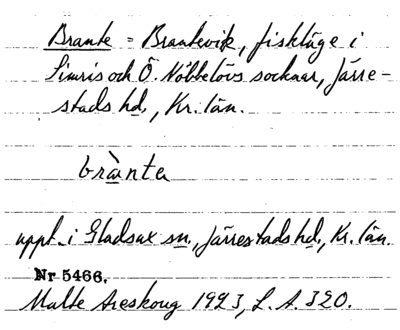 Brante = Brantevik, fiskläge i
Simris och Ö. Nöbbelövs socknar, Järre-
stads hd., Kr. län.
bràntɐ
uppt. i Gladsax sn., Järrestads hd., Kr. län.
Nr 5466.
Malte Areskoug 1923, L. A. 320.